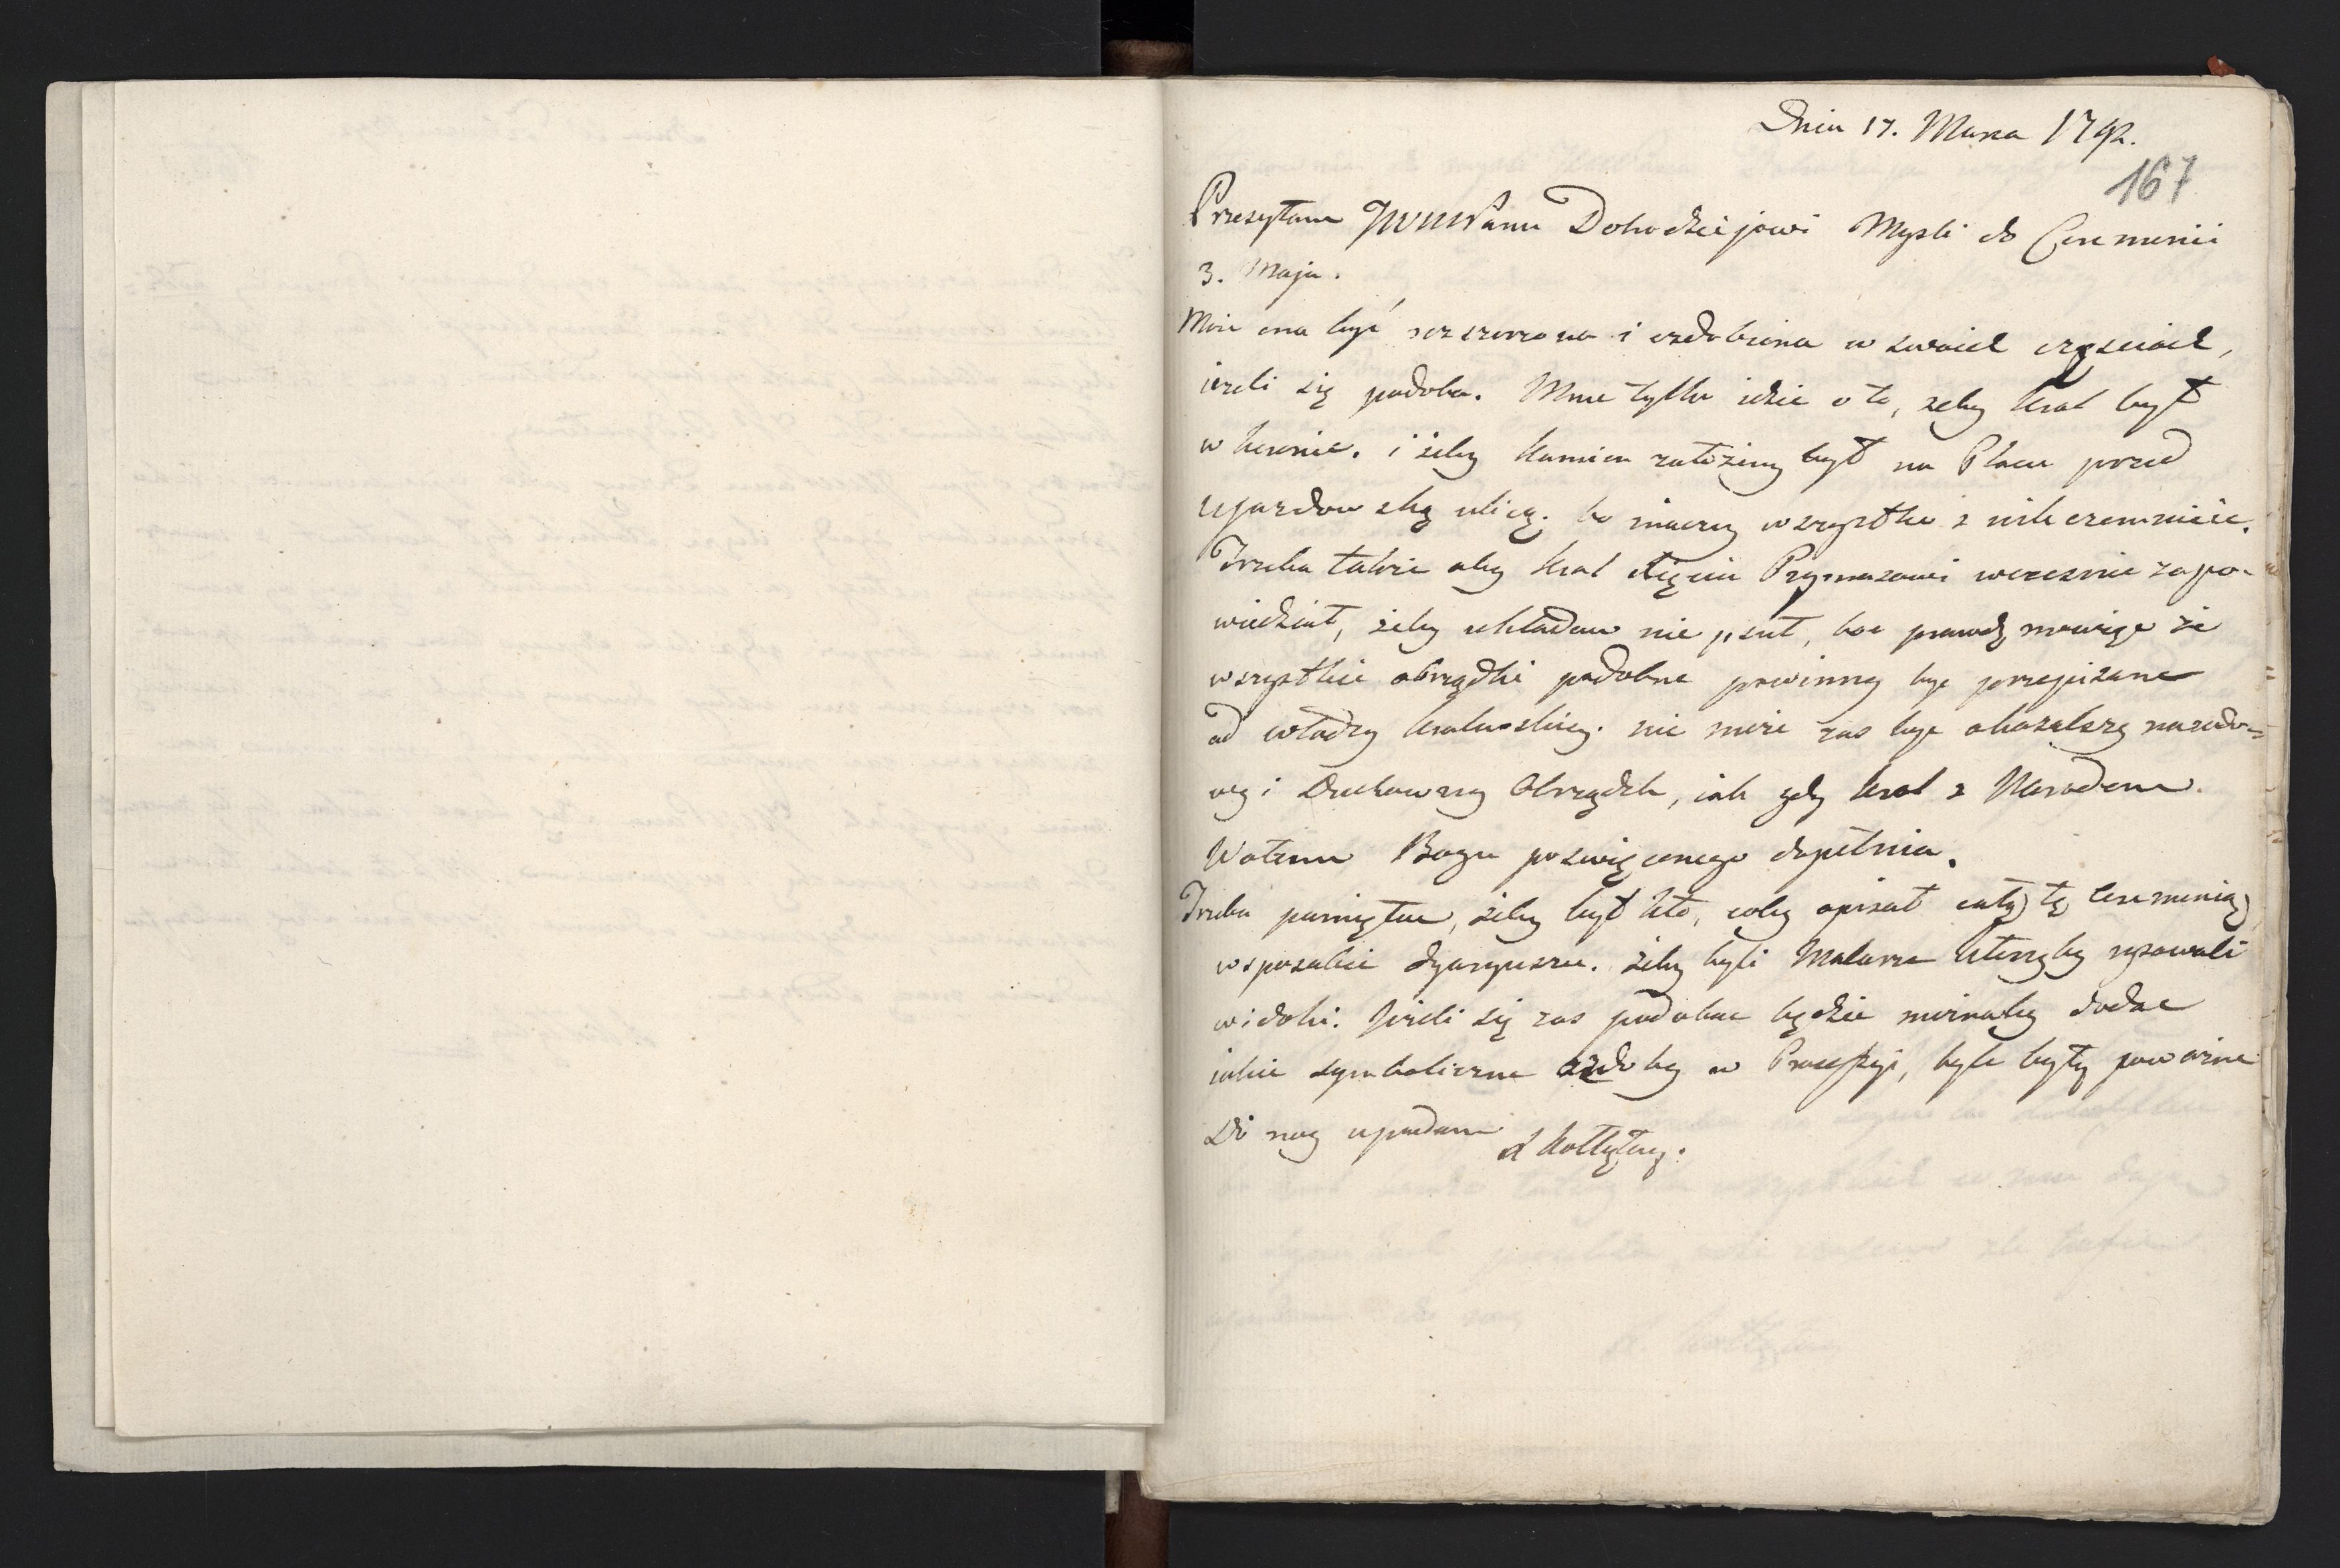 Dnia 17. Marca 1792.
167
Przesyłam JWWPanu Dobodziejowi Mysli do Ceremonii
3. Maja.
Może ona być rozszerzona i ozdobiona w swoich częsciach,
iezeli się podoba. Mnie tylko idzie o to, zeby Krol był
w koronie. i żeby kamien założony był na Placu przed
Ujazdowską ulicą. bo inaczey wszystko z niknczemnieie.
Trzeba także aby Krol Xięciu Prymasowi wczesnie zapo-
wiedział, żeby układow nie psuł, boc prawdę mowiąc że
wszystkie obrządki podobne powinny byc przepisane
od władzy krolewskiey. nie może zas byc okazalszy narodo-
wy i Duchowny Obrządek, iak gdy Krol z Narodem
Wotum Bogu poswięconego dopełnia.
Trzeba pamiętac, żeby był kto, coby opisał całą tę ceremonią,
w sposobie dyaryusza. żeby byli Malarze ktorzyby rysowali
widoki. Jezeli się zas podobac będzie możnaby dodac
iakie symboliczne ozdoby w Processyi, byle były powazne
Do nog upadam
H Kołłątay.